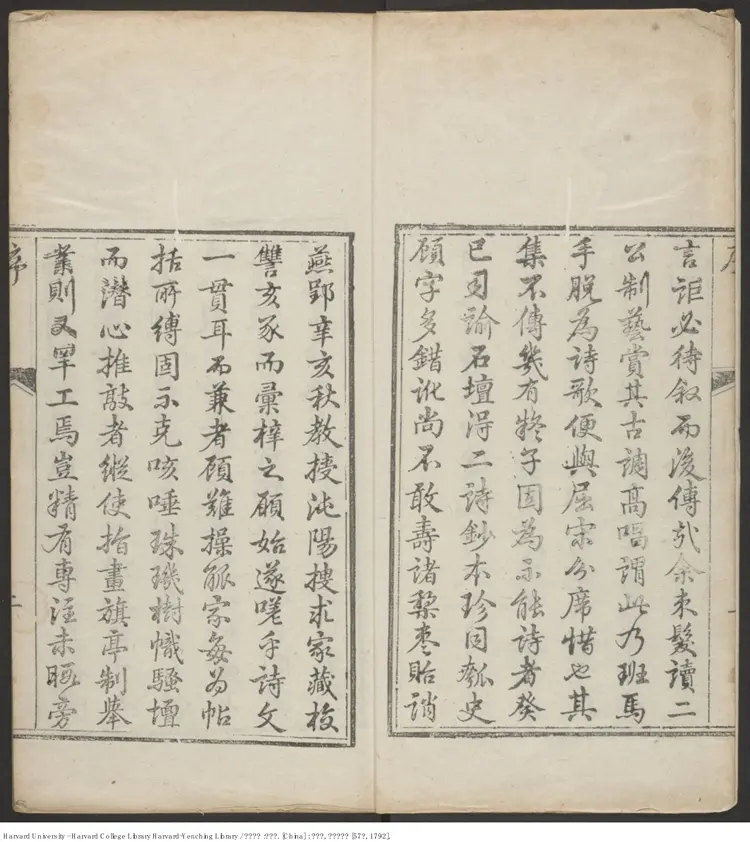 序
言詎必待叙而後傳哉余束髮讀二
公制藝賞其古調高唱謂此乃班馬
手脫為詩歌便與屈宋分席惜也其
集不傳幾有疑予固為不能詩者癸
巳司諭石壇得二詩鈔本珍同瓠史
顧字多錯訛尚不敢壽諸梨棗貽誚
燕郢辛亥秋教授沘陽搜求家藏校
讐亥豕而彙梓之願始遂嗟乎詩文
一貫耳而兼者顧難操觚家每為帖
括所縛固不克咳唾珠璣樹幟騷壇
而潛心推敲者縱使指畫旗亭制舉
業則又罕工焉豈精有專注未暇旁
序
二
Harvard University - Harvard College Library Harvard-Yenching Library / ???? : ???. [China] : ???, ????? [57?, 1792].